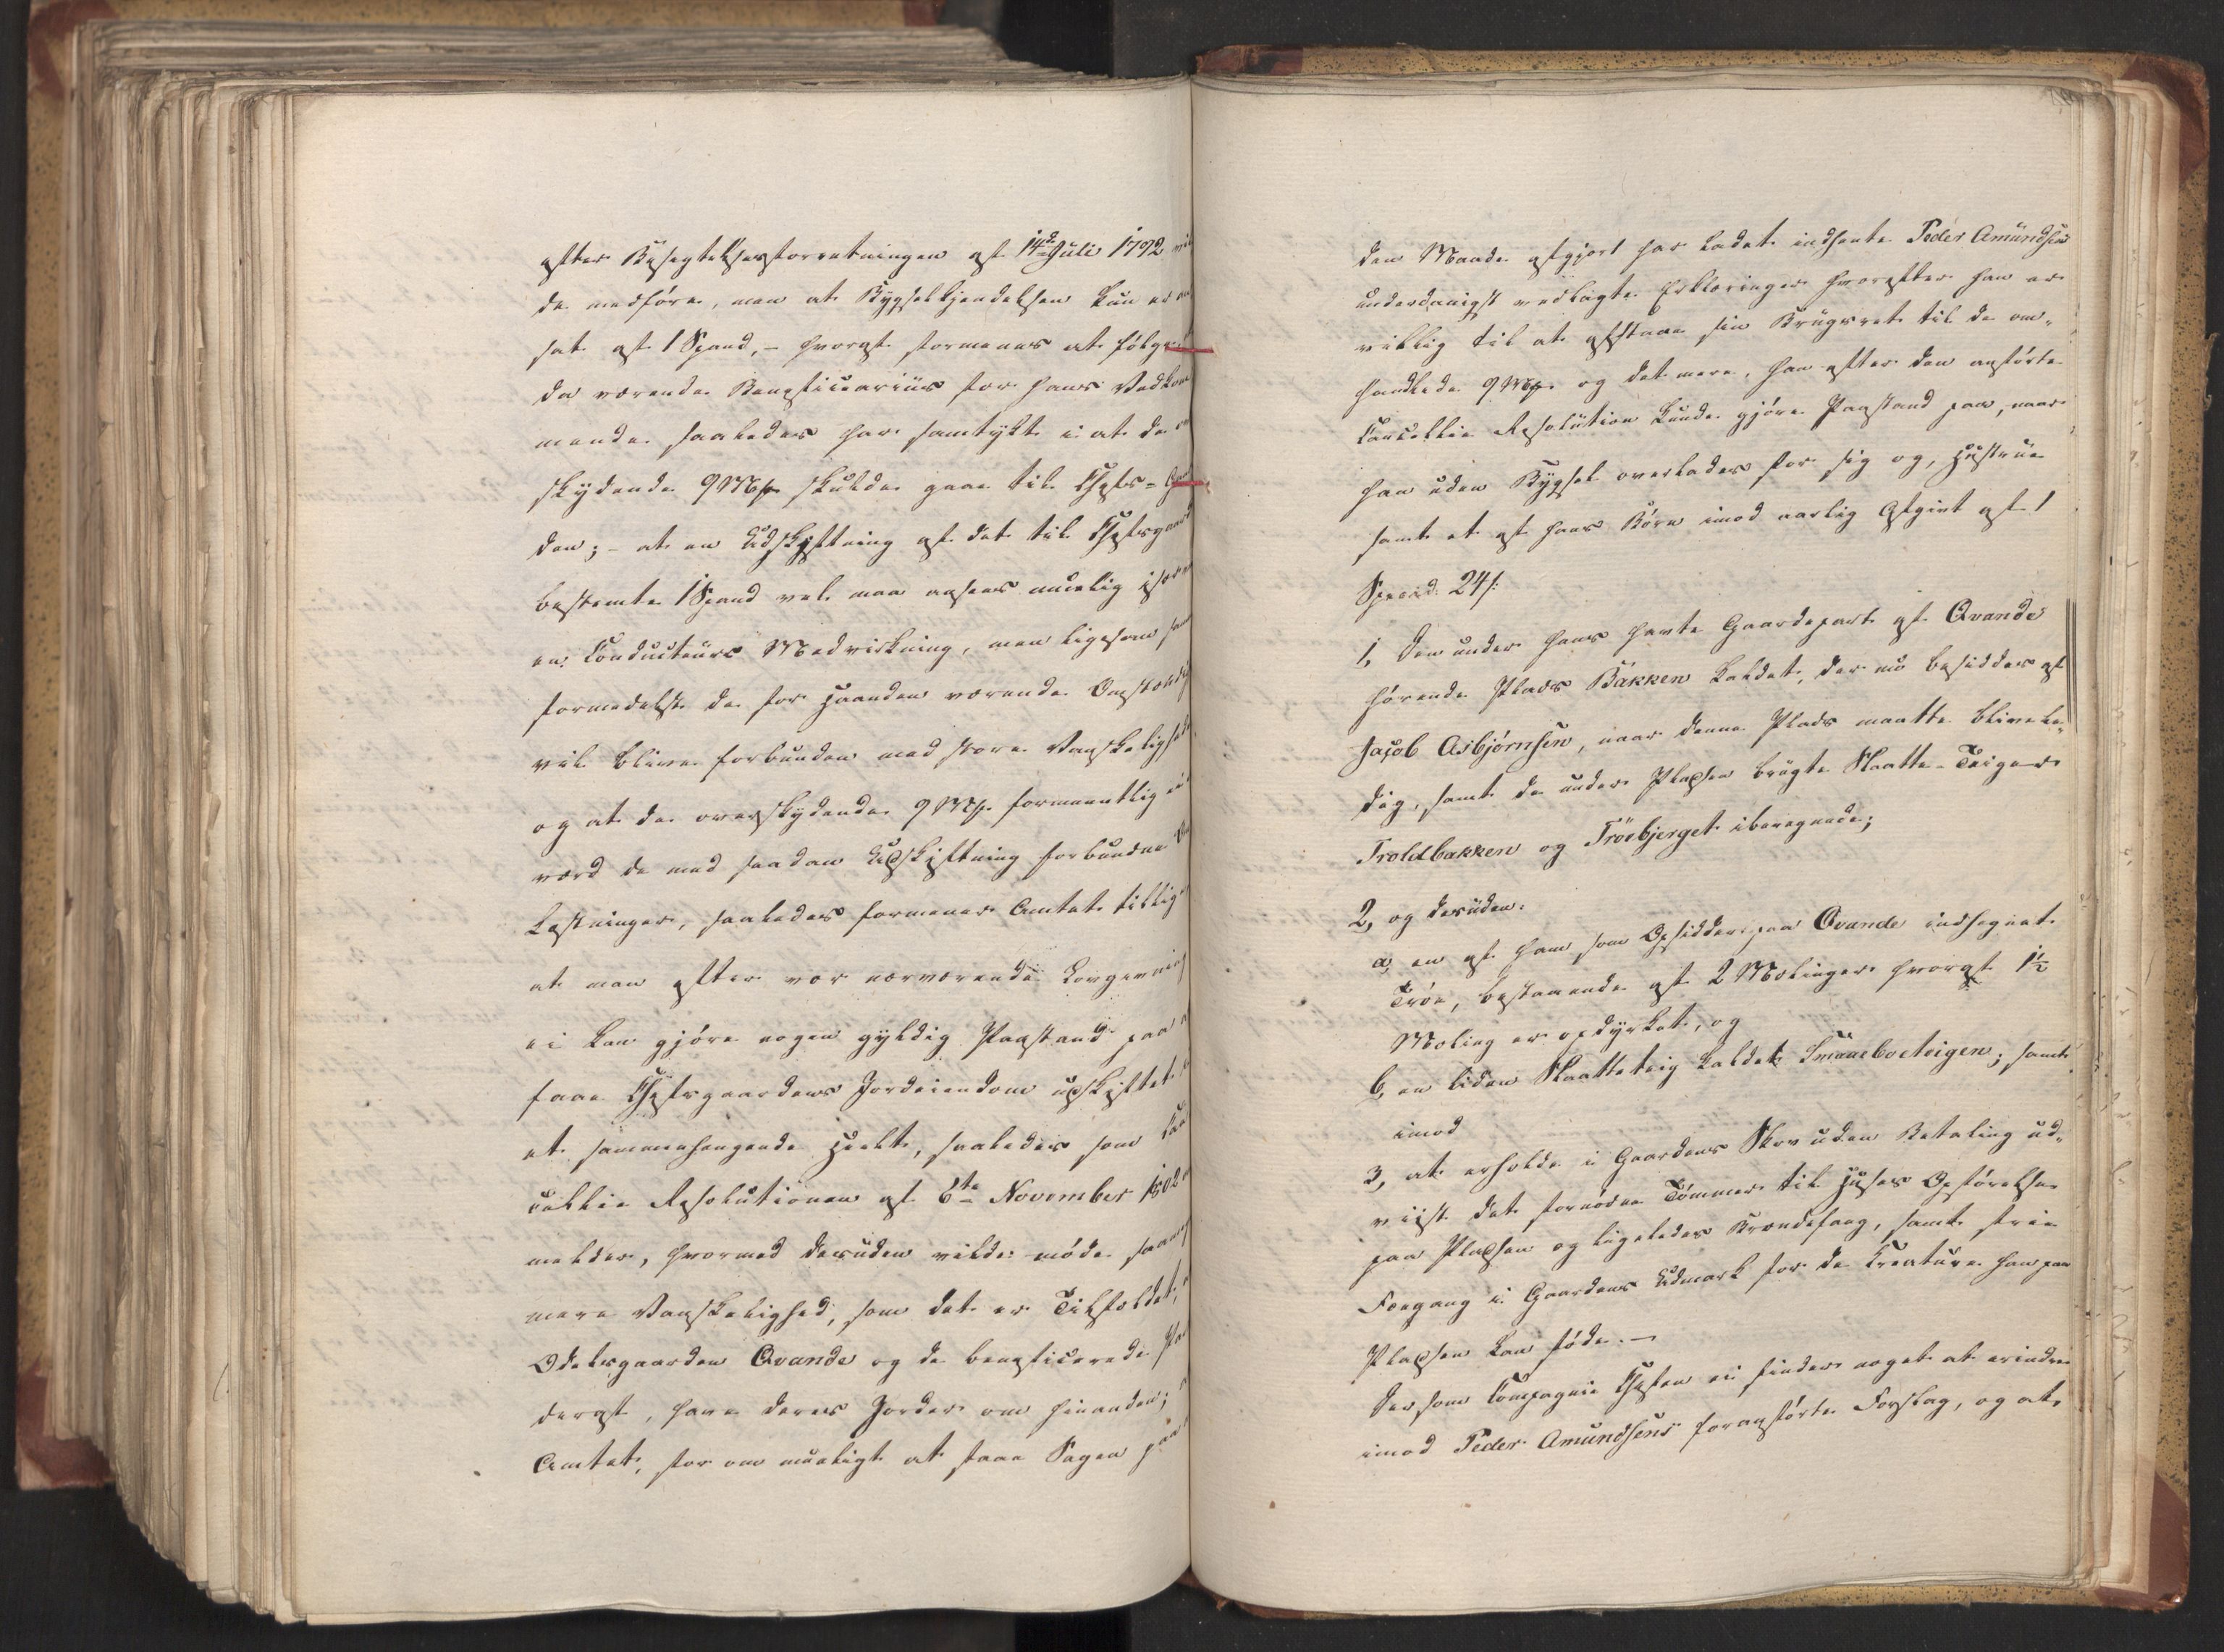 efter Besigtelsesforretningen af 14de Julii 1792
de medføre, men at Bygselkjendelsen kun er
sat af 1 Spand, – hvoraf formenes at følge
da værende Beneficiarius for hans Vedkom
mende saaledes har samtykt i at de
skydende 9 Mkp skulde gaae til Chefs-
den; – at en Udskiftning af det til Chefsgaard
bestemte 1 Spand vel maa ansees muelig
en Conducteurs Medvirkning, men ligesom
formedelst de for Haanden værende Omstændig
vil blive forbunden med store Vanskelighede
og at de overskydende 9 Mkp. formeentlig ei
værd de med saadan Udskiftning forbundne
kostninger, saaledes formener Amtet tillige
at man efter vor nærværende Lovgivning
ei kan gjøre nogen gyldig Paastand paa
faae Chefsgaardens Jordeiendom udskiftet
et sammenhængende Heelt, saaledes som Can
cellie Resolutionen af 6te November 1802
melder, hvormed desuden vilde møde saameget
mere Vanskelighed, som det er Tilfældet,
Odelsgaarden Qvande og de beneficerede
deraf, have deres Jorder om hinanden;
Amtet, for om mueligt at faae Sagen paa
den Maade afgjort har ladet indhente Peder Amundsens
underdanigst vedlagte Erklæringer hvorefter han er
villig til at afstaae sin Brugsret til de om-
handlede 9 Mkp. og det mere, han efter den anførte
Cancellie Resolution kunde gjøre Paastand paa, naar
han uden Bygsel overlades for sig og, Hustrue
samt et af hans Børn imod aarlig Afgivt af 1
Specid: 24 s:
1, Den under hans havte Gaardepart af Qvande
hørende Plads Bakken kaldet, der nu besiddes af
Jacob Asbjørnsen, naar denne Plads maatte blive le-
dig, samt de under Pladsen brugte Slaatte-Teiger
Troldbakken og Trøebjerget iberegnede;
2, og desuden:
a, en af ham som Opsidder paa Qvande indhegnet
Trøe, bestaaende af 2 Mælinger hvoraf 1½
Mæling er opdyrket, og
b, en liden Slaatteteig kaldet Smaaeboeteigen; samt
imod
3, at erholde i Gaardens Skov uden Betaling ud-
viist det fornødne Tømmer til Huses Opførelse
paa Pladsen og ligeledes Brændefang, samt frie
Foegang i Gaardens Udmark for de Creature han paa
Pladsen kan føde. –
Dersom Compagnie Chefen ei finder noget at erindre
imod Peder Amundsens foranførte Forslag, og at